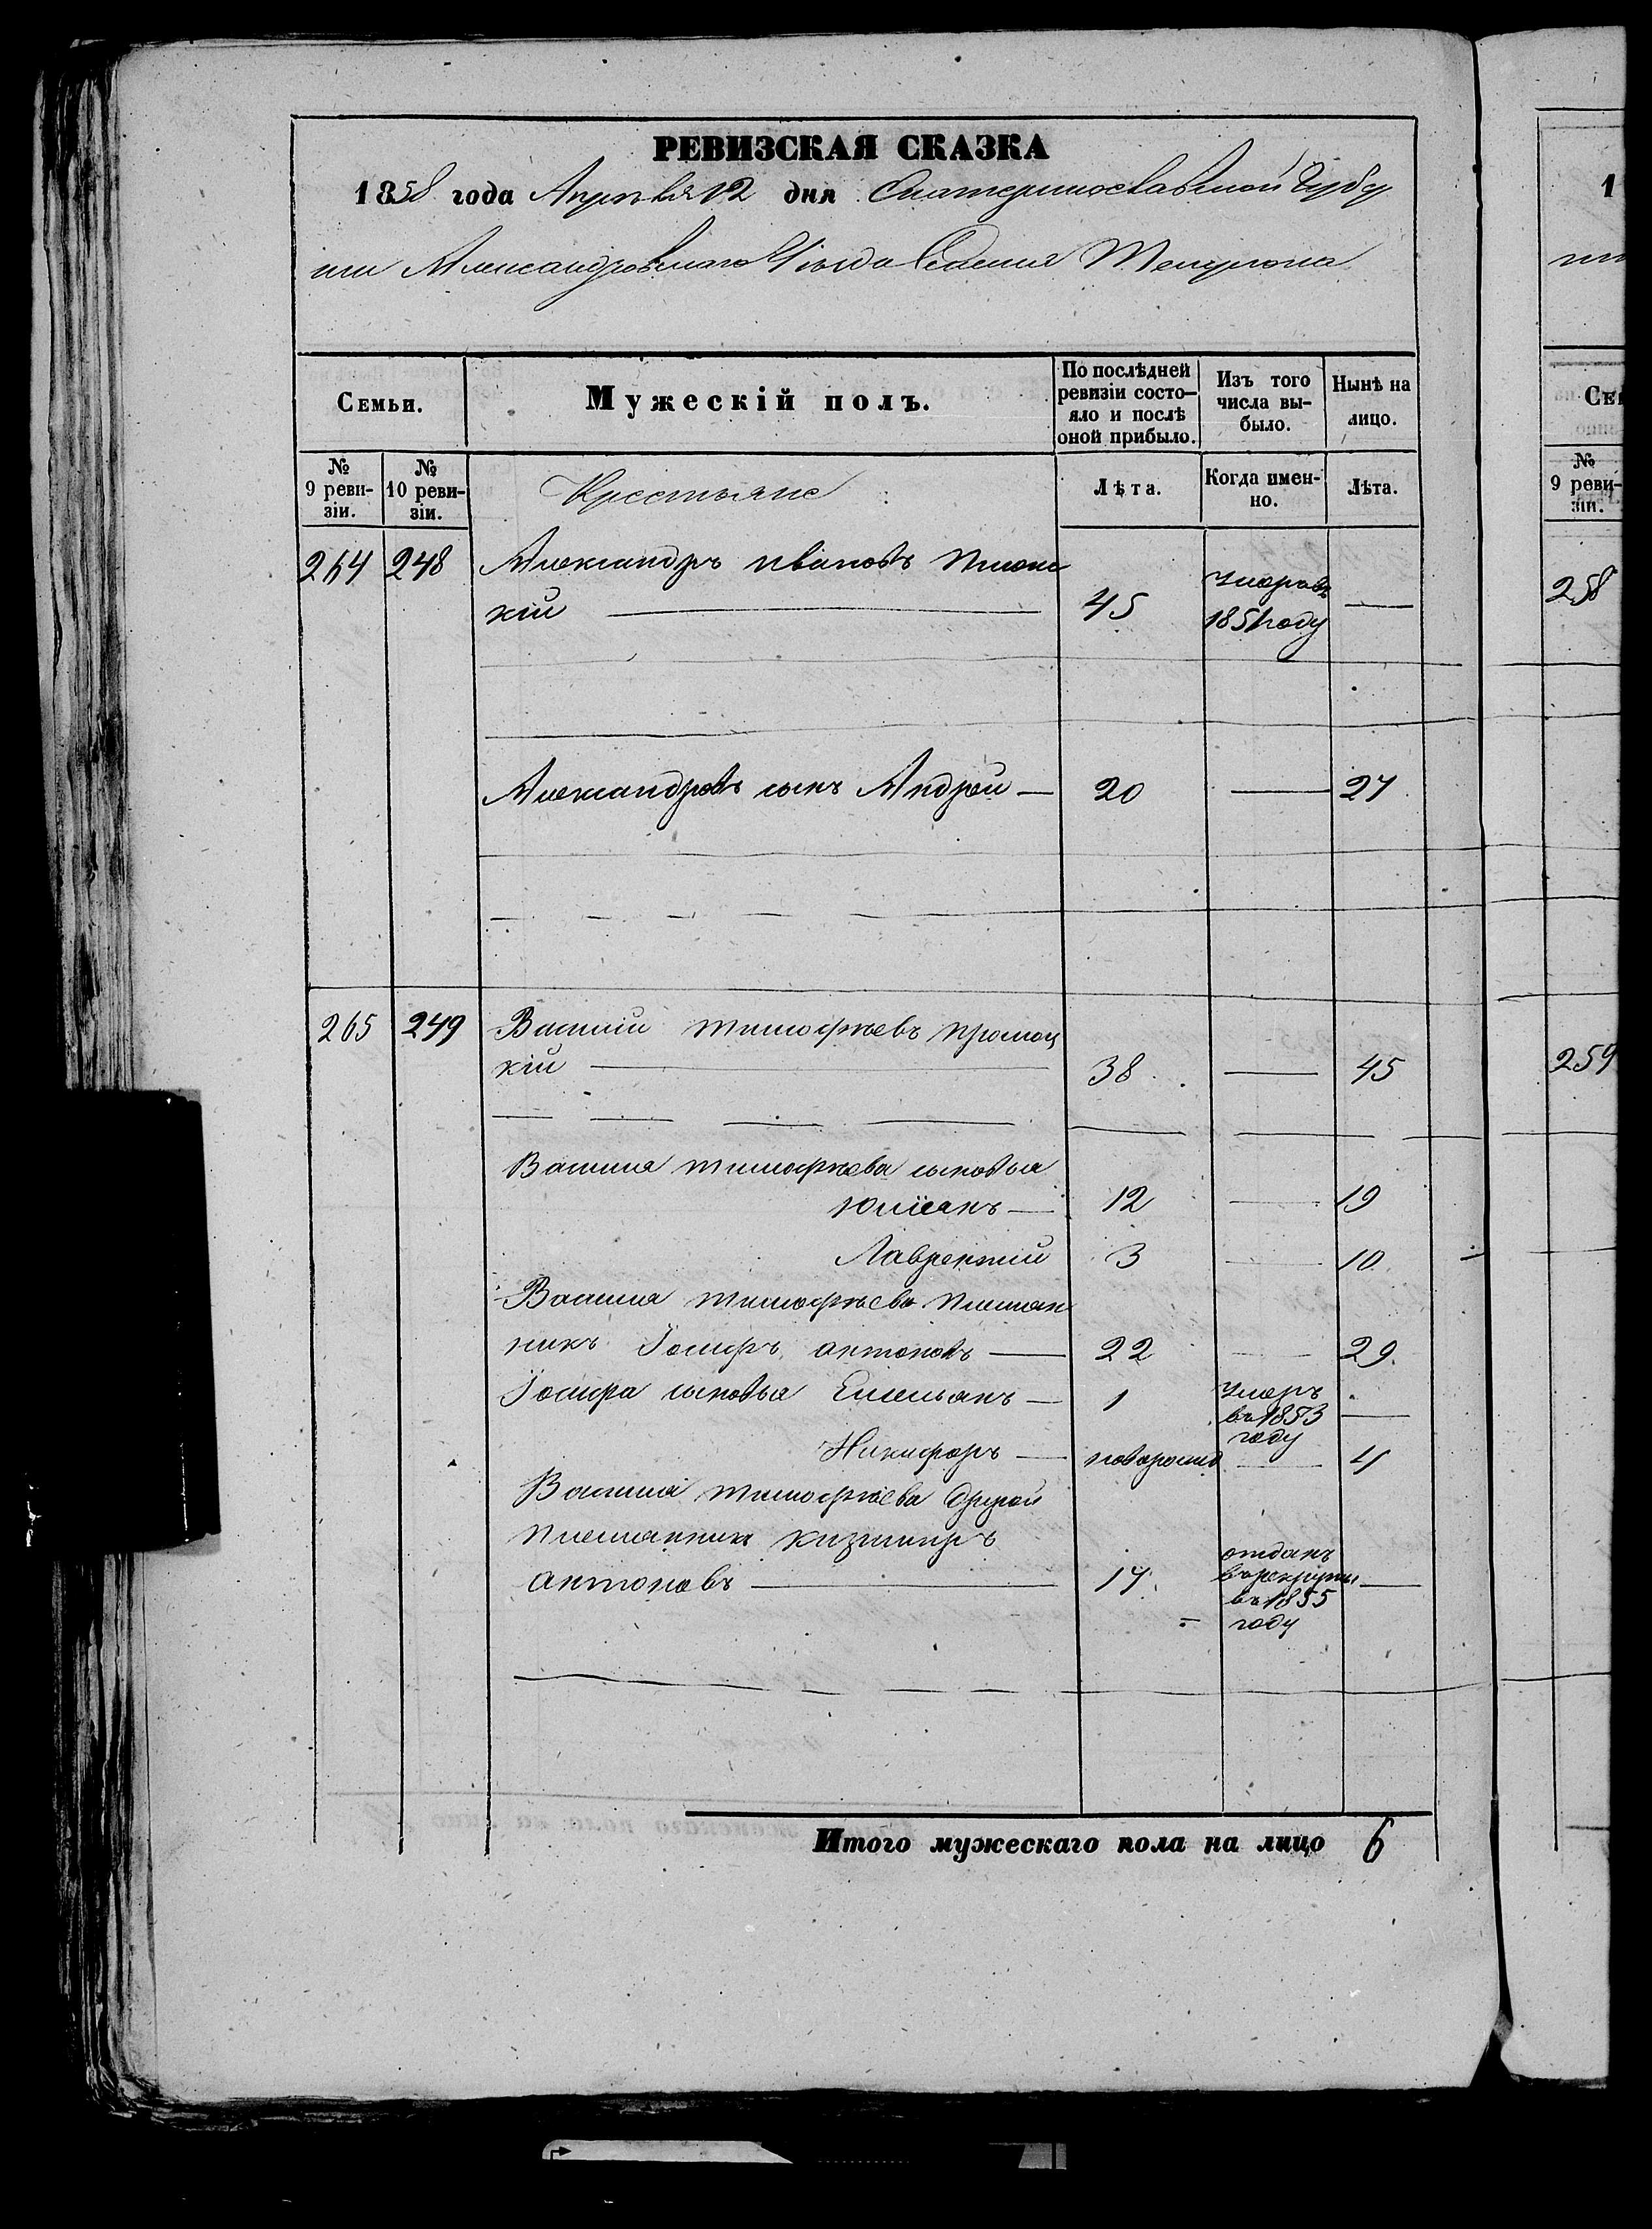 РЕВИЗСКАЯ СКАЗКА
1858 года Апрѣля 12 дня Екатеринославской Губер
нии Александровскаго Уѣзда Селения
Семьи.
Мужескій полъ.
По послѣдней ревизіи состо-
яло и послѣ
оной прибыло.
Изъ того
числа вы-
было.
Нынѣ на
лицо.
№
9 реви-
зіи.
№
10 реви-
зіи.
Крестьяне
Лѣта.
Когда имен-
но.
Лѣта.
264 248 Александръ Ивановъ
кій — 45 умеръ въ 1851 году —
Александровъ сынъ Андрей — 20 — 27
265 249 Василий тимофѣевъ
кій — 38 — 45
Василия тимофѣева сыновья
Юлианъ — 12 — 19
Лаврентий 3 — 10
Василия тимофѣева племян
никъ Іосифъ антоновъ — 22 — 29.
Іосифа сыновья Емельянъ — 1 умеръ въ 1853 году —
Никифоръ — новорожд — 4
Василия тимофѣева другой
племянник казимиръ
антоновъ — 17. отданъ в рекруты въ 1855 году —
Итого мужескаго пола на лицо 6
1
Се
№
9 реви-
зіи.
258
259